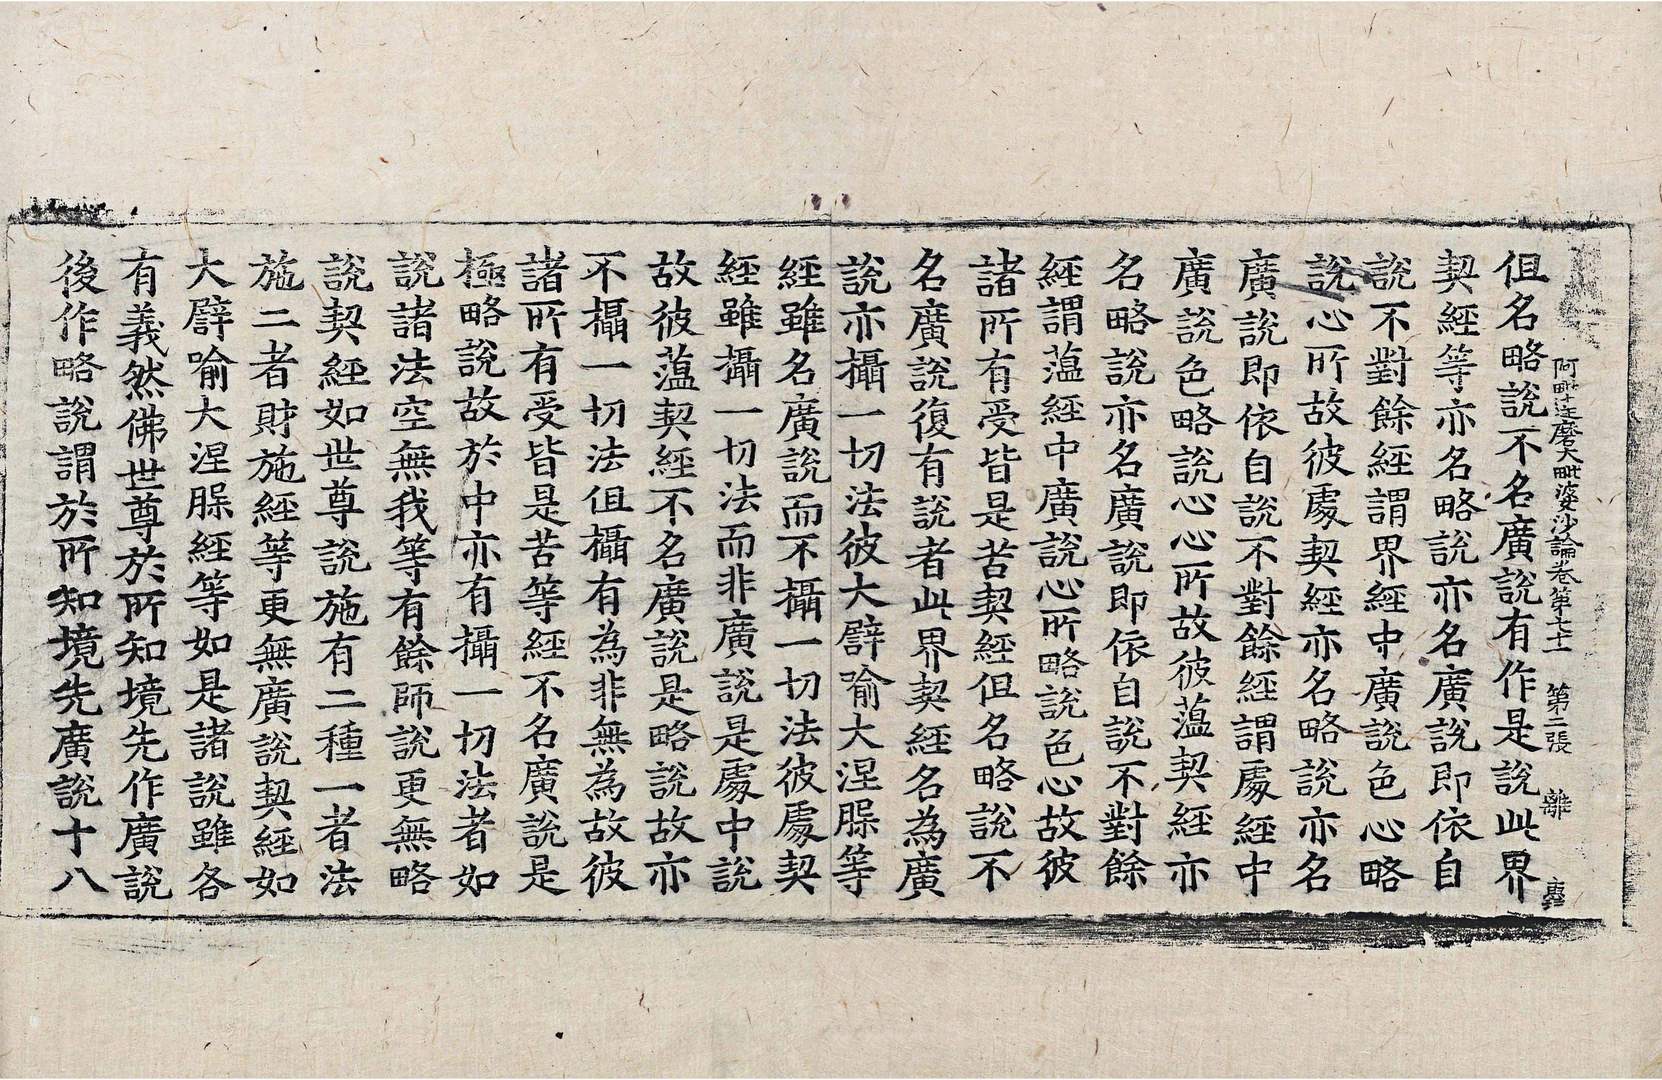 阿毗達磨大毗婆沙論卷第七十一　第二張　離
但名略說不名廣說有作是說此界
契經等亦名略說亦名廣說即依自
說不對餘經謂界經中廣說色心略
說心所故彼處契經亦名略說亦名
廣說即依自說不對餘經謂處經中
廣說色略說心心所故彼薀契經亦
名略說亦名廣說即依自說不對餘
經謂薀經中廣說心所略說色心故彼
諸所有受皆是苦契經但名略說不
名廣說復有說者此界契經名為廣
說亦攝一切法彼大譬喻大涅槃等
經雖名廣說而不攝一切法彼處契
經雖攝一切法而非廣說是處中說
故彼薀契經不名廣說是略說故亦
不攝一切法但攝有為非無為故彼
諸所有受皆是苦等經不名廣說是
極略說故於中亦有攝一切法者如
說諸法空無我等有餘師說更無略
說契經如世尊說施有二種一者法
施二者財施經等更無廣說契經如
大譬喻大涅槃經等如是諸說雖各
有義然佛世尊於所知境先作廣說
後作略說謂於所知境先廣說十八